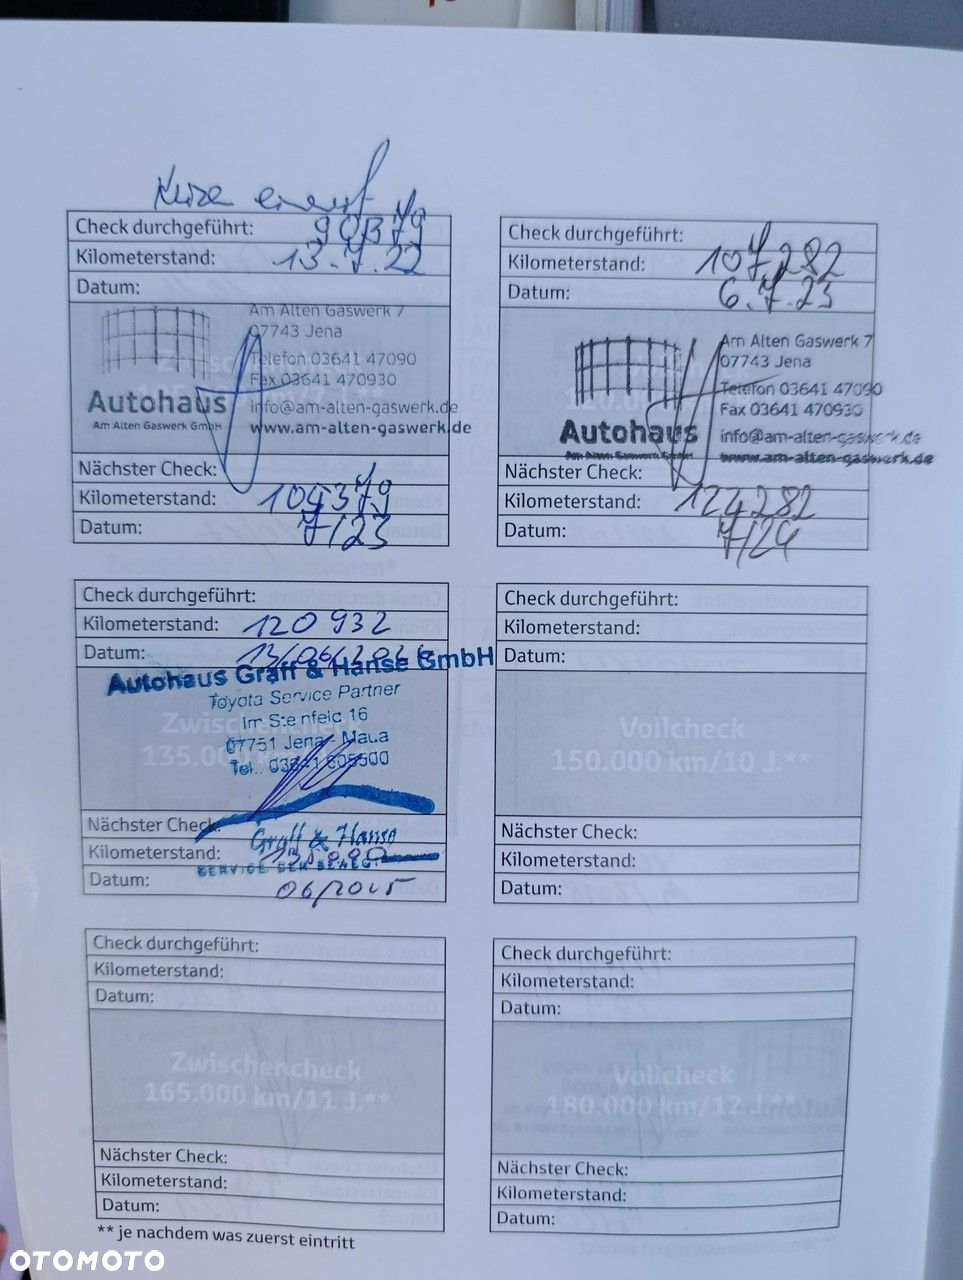 Check durchgeführt:
90379
Kilometerstand: 13.7.22
Datum:
Am Alten Gaswerk 7
07743 Jena
Telefon 03641 47090
Fax 03641 470930
Autohaus
info@am-alten-gaswerk.de
Am Alten Gaswerk GmbH
www.am-alten-gaswerk.de
Nächster Check:
Kilometerstand: 104379
Datum: 7/23
Check durchgeführt:
Kilometerstand: 107.282
Datum: 6.7.23
Am Alten Gaswerk 7
07743 Jena
Telefon 03641 47090
Fax 03641 470930
Autohaus
info@am-alten-gaswerk.de
Am Alten Gaswerk GmbH
www.am-alten-gaswerk.de
Nächster Check:
Kilometerstand: 124282
Datum: 7/24
Check durchgeführt:
Kilometerstand: 120 932
Datum:
Autohaus Graff & Hanse GmbH
Toyota Service Partner
Im Steinfeld 16
07751 Jena - Maua
Tel. 03641 805500
Zwischencheck
135.000 km
Nächster Check:
Graff & Hanse
Kilometerstand:
Datum: 06/2025
Check durchgeführt:
Kilometerstand:
Datum:
Vollcheck
150.000 km/10 J.**
Nächster Check:
Kilometerstand:
Datum:
Check durchgeführt:
Kilometerstand:
Datum:
Zwischencheck
165.000 km/11 J.**
Nächster Check:
Kilometerstand:
Datum:
Check durchgeführt:
Kilometerstand:
Datum:
Vollcheck
180.000 km/12 J.**
Nächster Check:
Kilometerstand:
Datum:
** je nachdem was zuerst eintritt
OTOMOTO